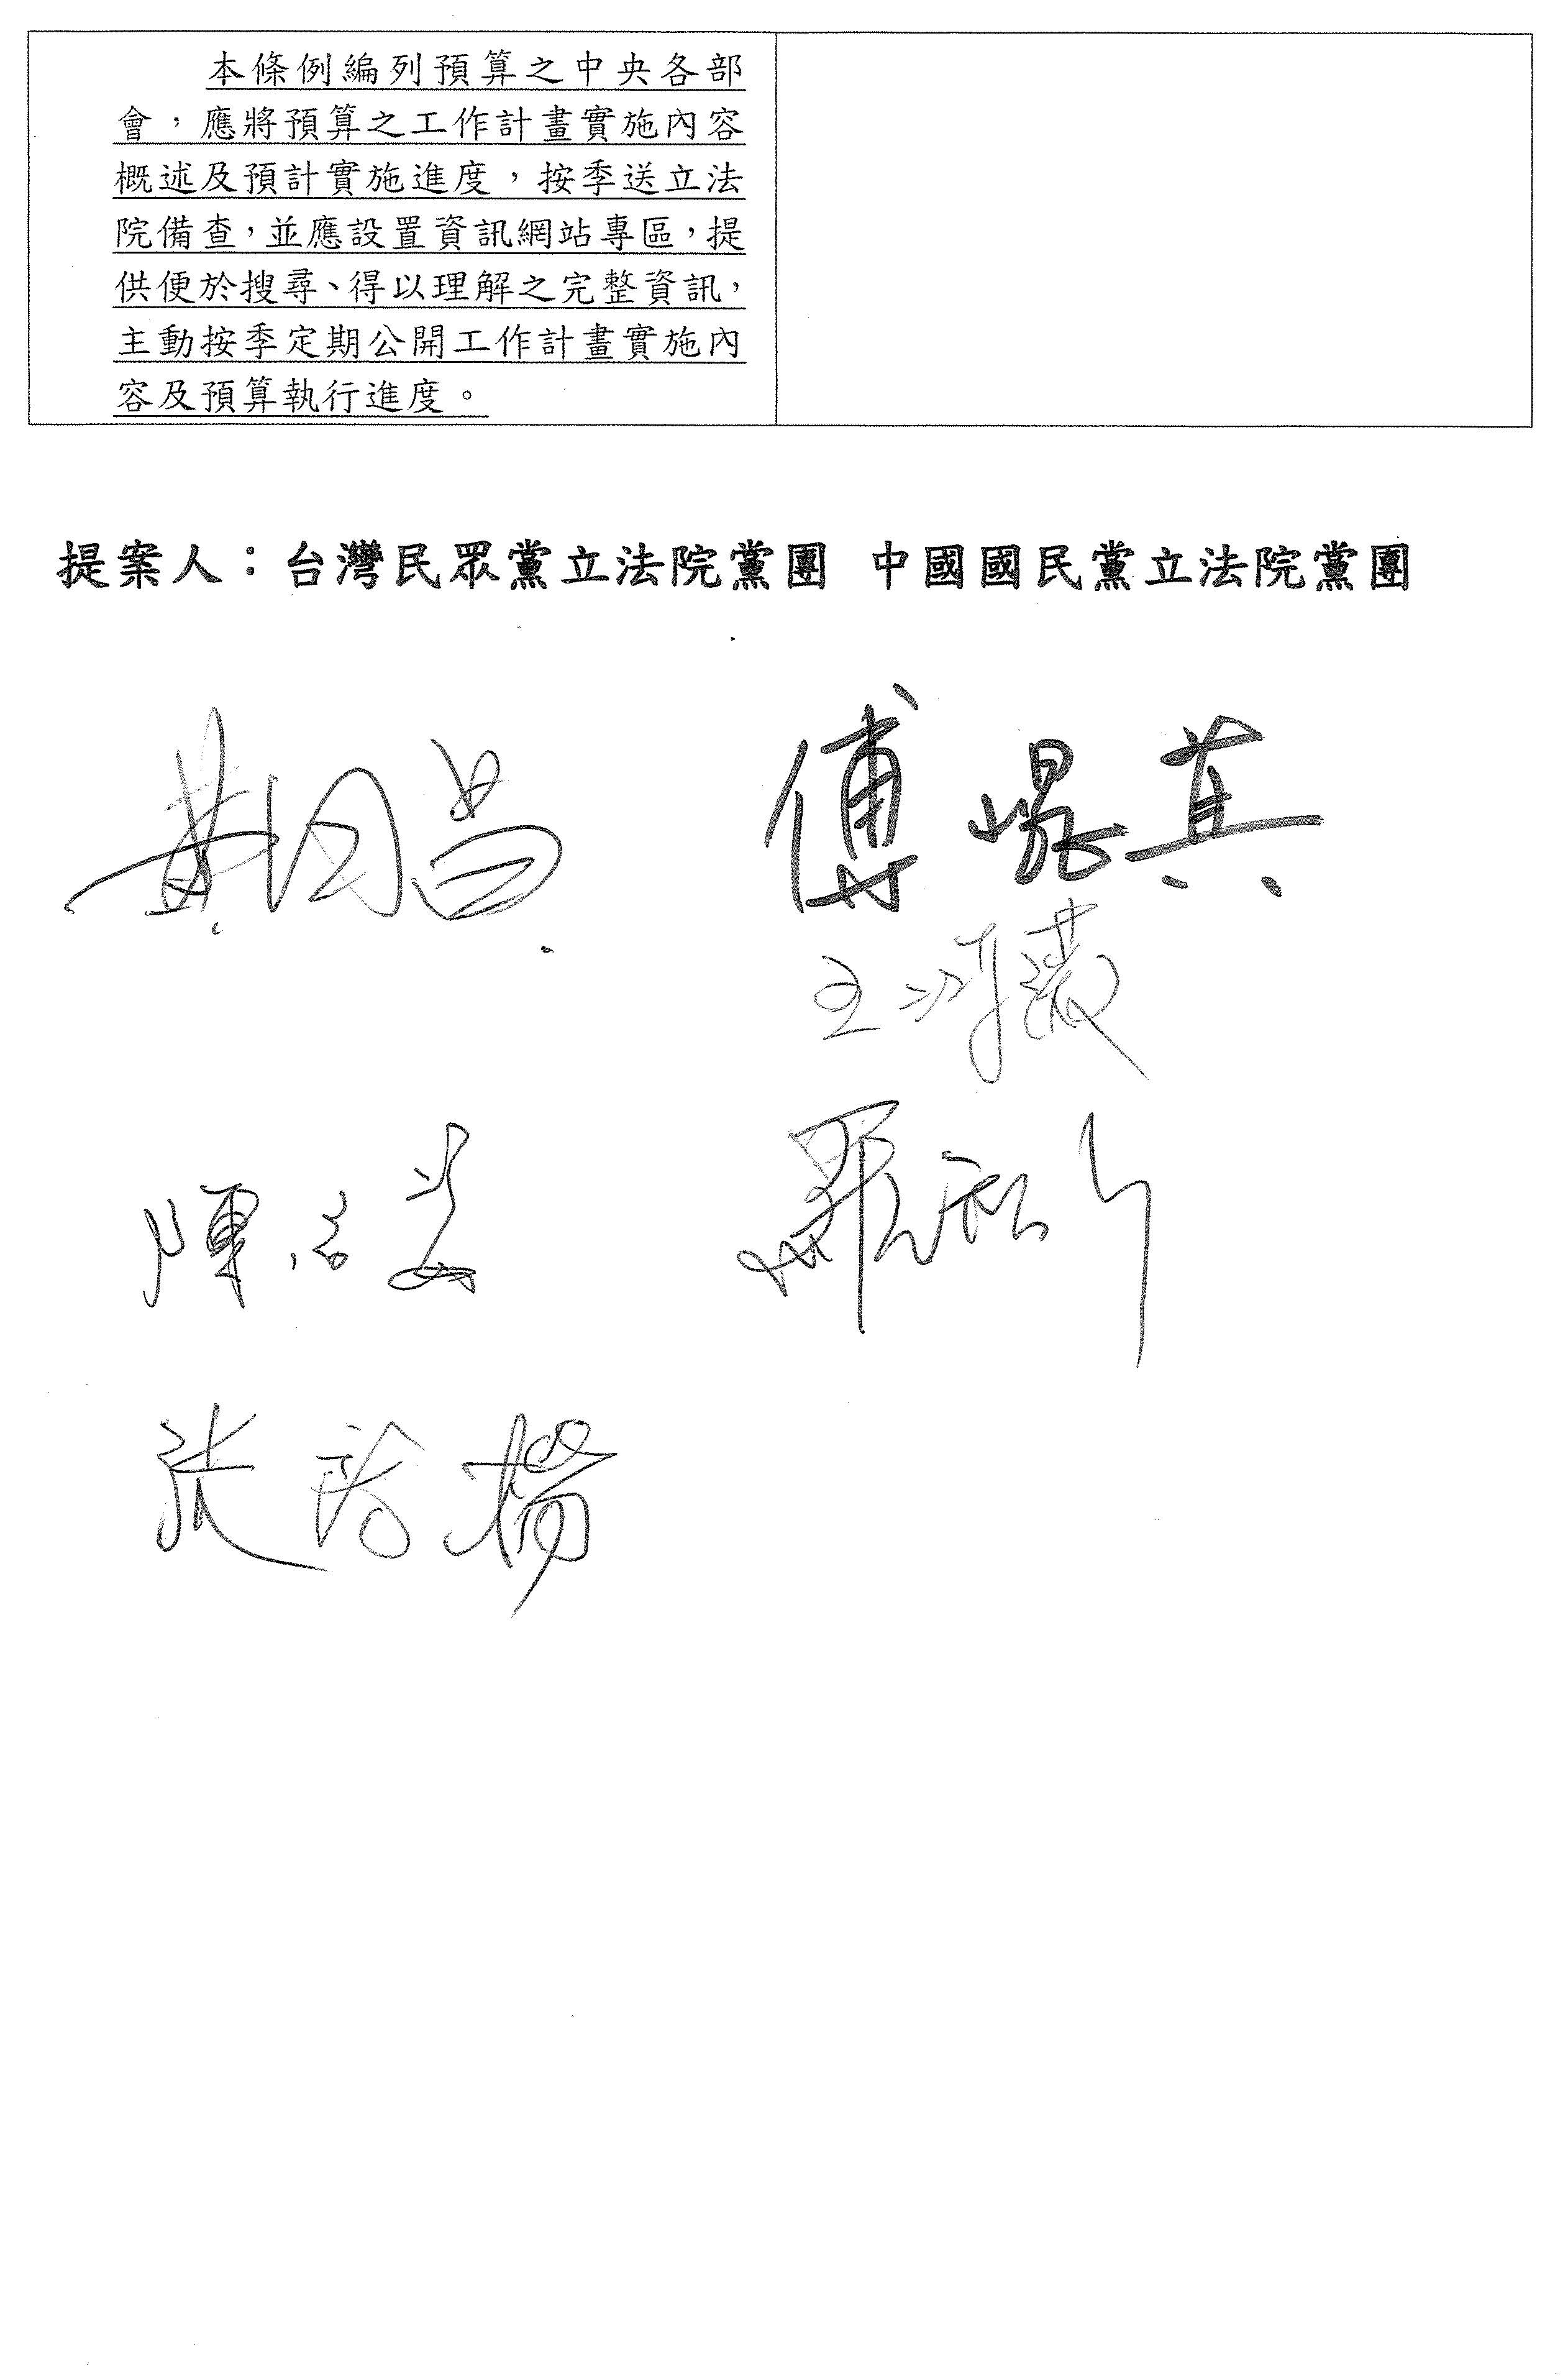 本條例編列預算之中央各部
會，應將預算之工作計畫實施內容
概述及預計實施進度，按季送立法
院備查，並應設置資訊網站專區，提
供便於搜尋、得以理解之完整資訊，
主動按季定期公開工作計畫實施內
容及預算執行進度。
提案人：台灣民眾黨立法院黨團 中國國民黨立法院黨團
黃國昌 傅崐萁
羅智強
張啓楷